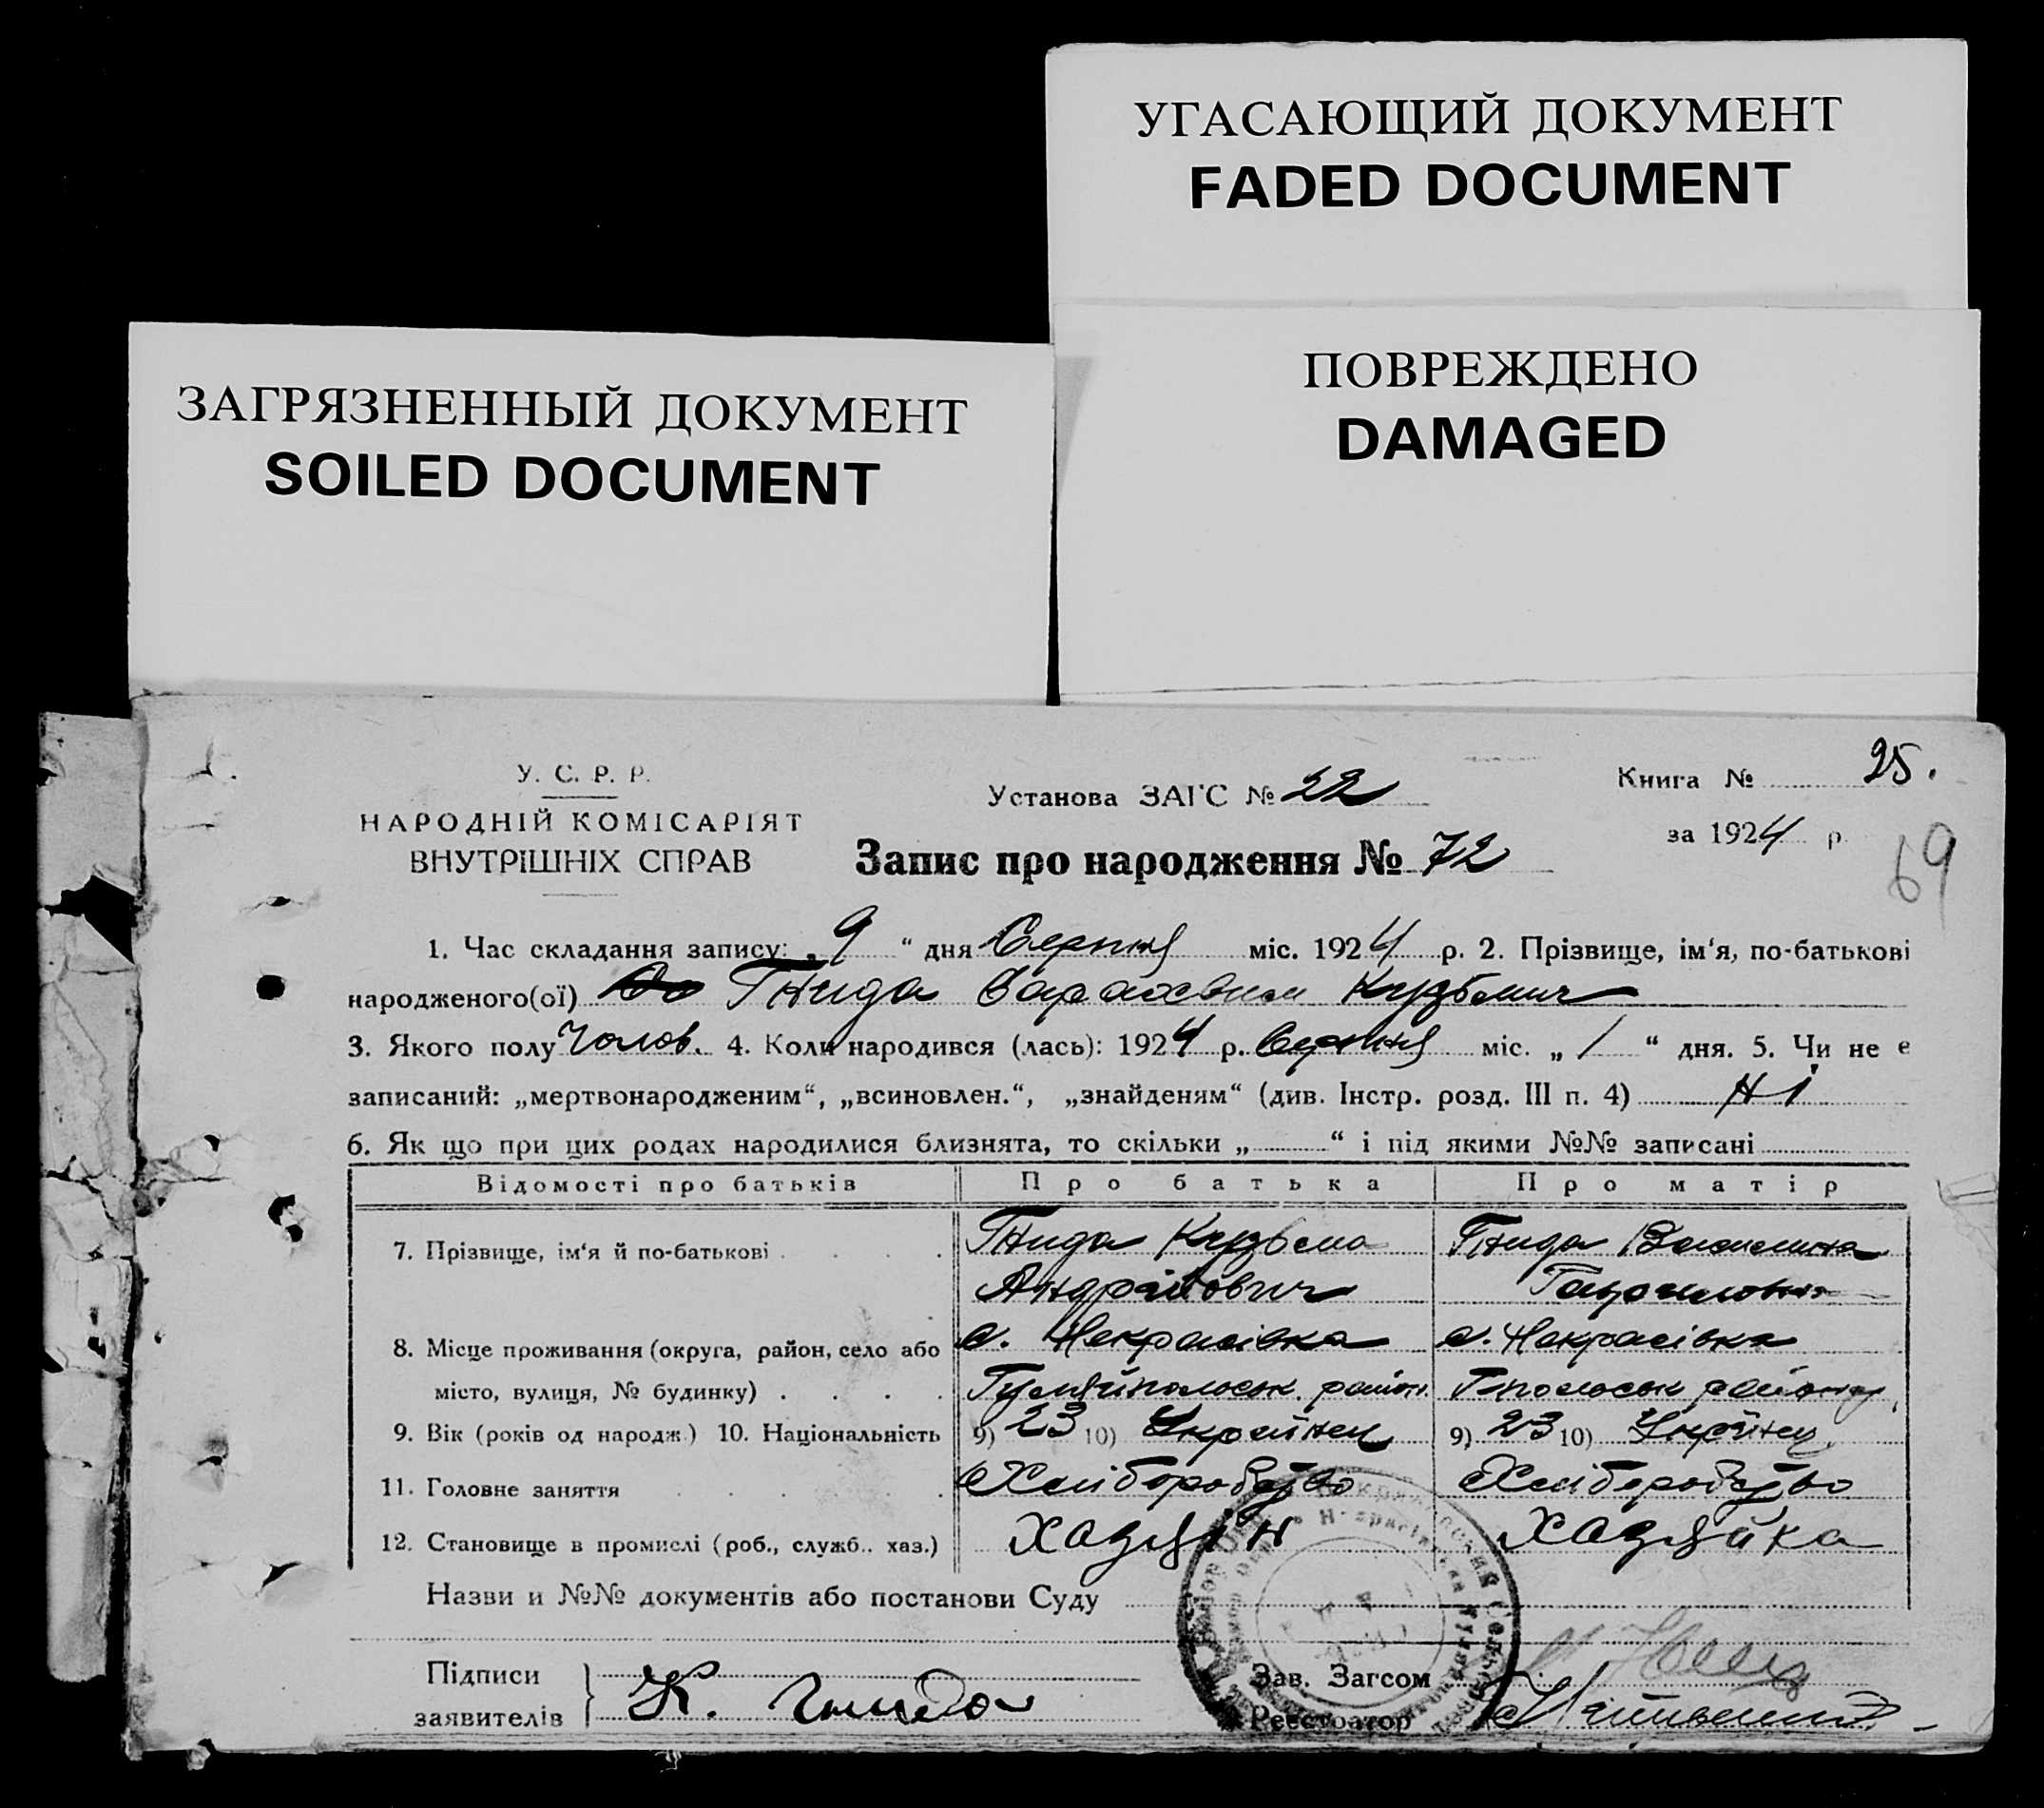 УГАСАЮЩИЙ ДОКУМЕНТ
FADED DOCUMENT
ПОВРЕЖДЕНО
DAMAGED
ЗАГРЯЗНЕННЫЙ ДОКУМЕНТ
SOILED DOCUMENT
У. С. Р. Р.
НАРОДНІЙ КОМІСАРІЯТ
ВНУТРІШНІХ СПРАВ
Установа ЗАГС № 22
Запис про народження № 72
Книга № 25.
за 1924 р.
69
1. Час складання запису: „ 9 “ дня Серпня міс. 1924 р. 2. Прізвище, ім‘я, по-батькові
народженого(ої) Гнида Кузьмич
3. Якого полу Чолов. 4. Коли народився (лась): 1924 р. Серпня міс. „ 1 “ дня. 5. Чи не е
записаний: „мертвонародженим“, „всиновлен.“, „знайденям“ (див. Інстр. розд. III п. 4) Ні
6. Як що при цих родах народилися близнята, то скільки „ “ і під якими №№ записані
Відомості про батьків Про батька Про матір
7. Прізвище, ім‘я й по-батькові Гнида Кузьма Гнида
Андрійович Гавриловна
8. Місце проживання (округа, район, село або с. Некрасівка с. Некрасівка
місто, вулиця, № будинку) Гуляйпольськ. район
9. Вік (років од народж.) 10. Національність 9) 23 10) Українец 9) 23 10)
11. Головне заняття Хліборобство Хліборобство
12. Становище в промислі (роб., служб.. хаз.) Хазяїн Хазяйка
Назви и №№ документів або постанови Суду
Підписи
заявителів К. Гнида
Зав. Загсом
Реєстратор